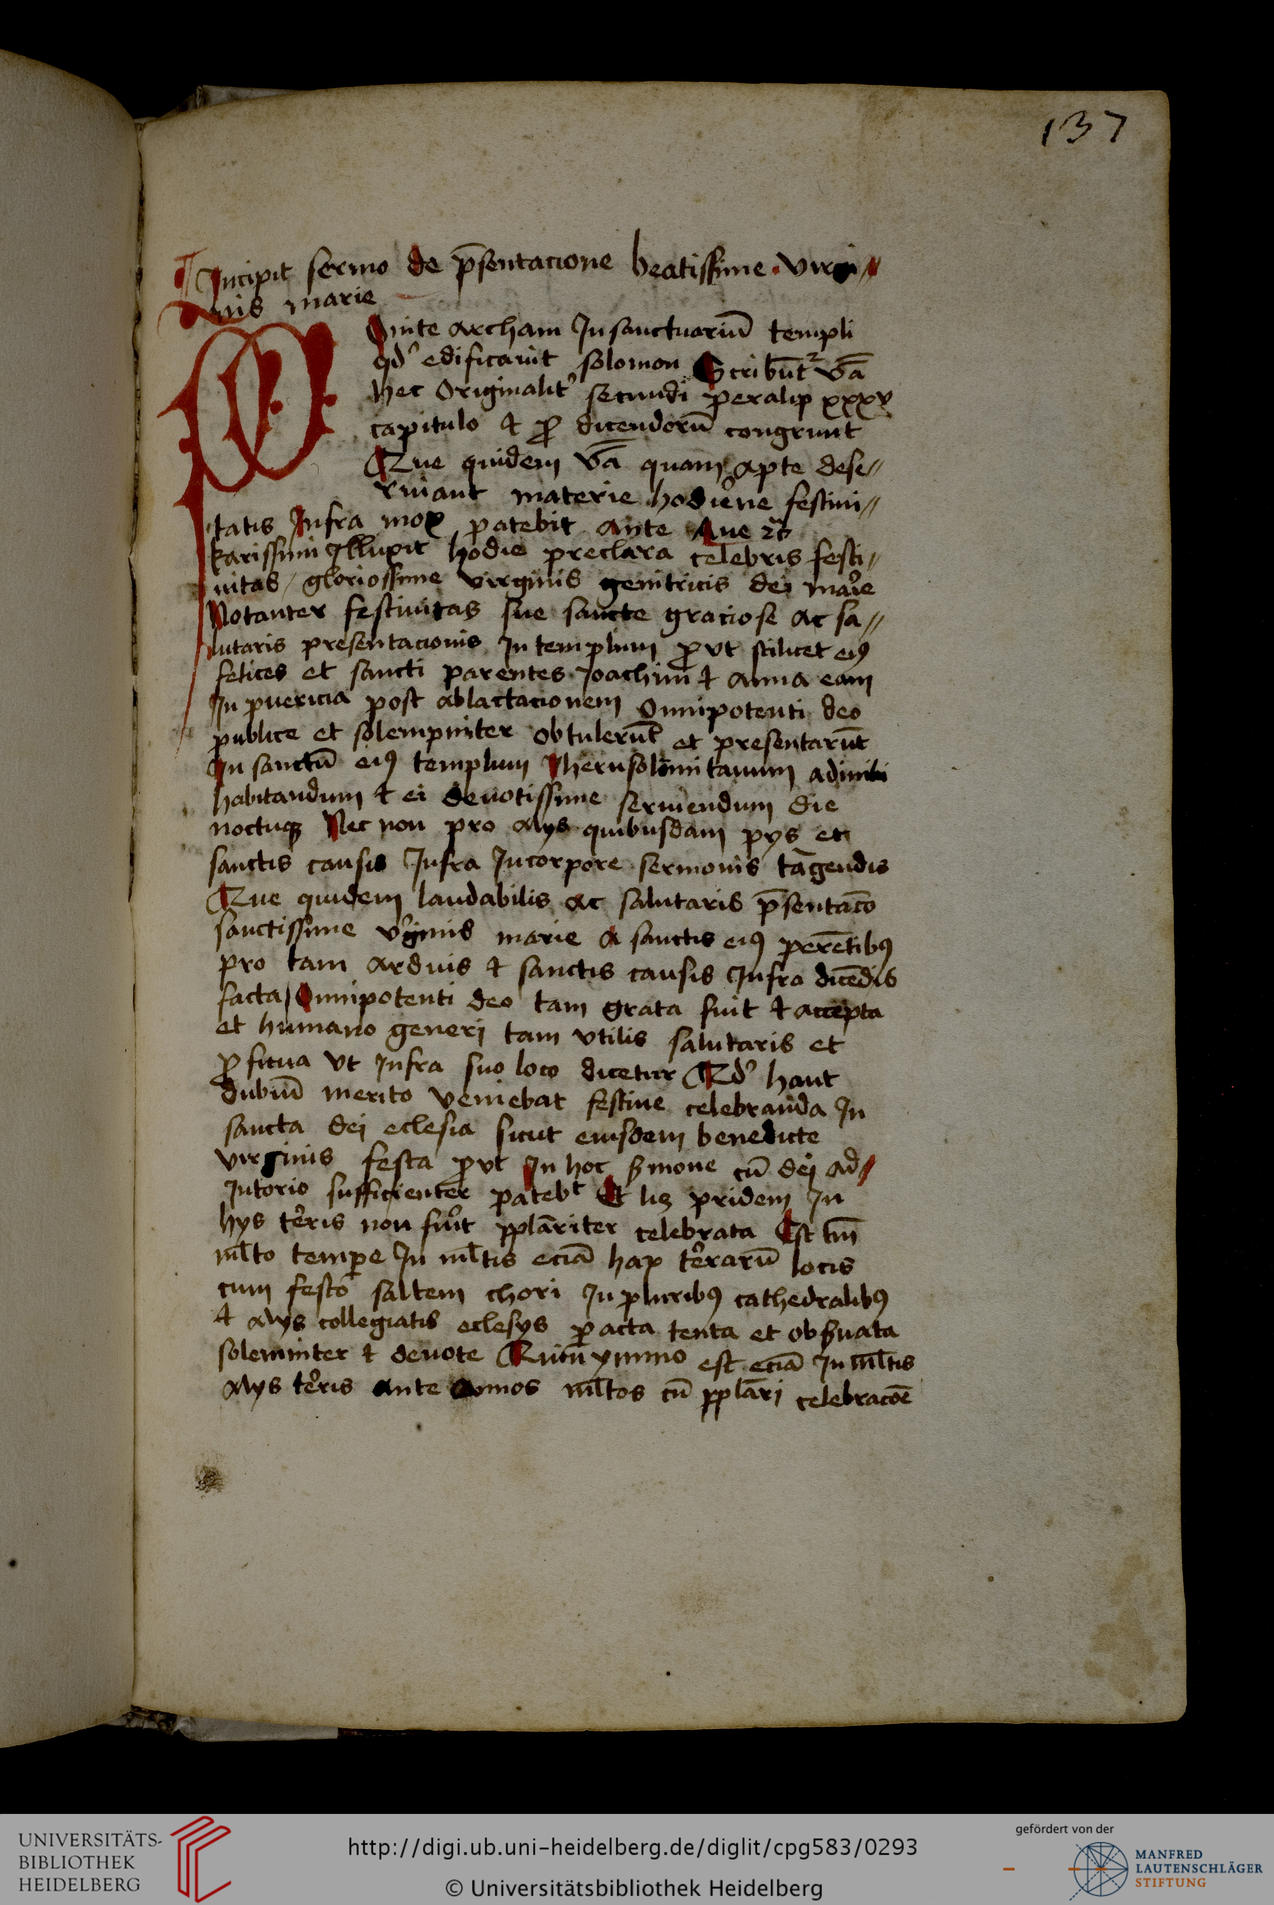 137
Incipit sermo de p̄sentacione beatissime virgi//
nis marie
POnite archam In sanctuariū templi
qd' edificauit solomon Scribūt² v̄ba
hec Originalit' secundi peralip xxxv
capitulo & ꝓ dicendorū congruunt
Que quidem v̄ba quam apte dese//
ruiant materie hodierne festiui//
tatis Infra mox patebit Ante Aue
karissimi Illuxit hodie preclara celebris festi//
uitas / gloriossime virginis genitricis dei marie
Notanter festiuitas sue sancte graciose ac sa//
lutaris presentacionis In templum ꝓvt scilicet eiꝰ
felices et sancti parentes Joachim & anna eam
In puericia post ablactacionem Omnipotenti deo
publice et solempniter obtulerūt et presentarūt
In sanctū eiꝰ templum Jherusolimitanum
habitandum & ei deuotissime seruiendum die
noctuqꝫ Nec non pro alys quibusdam pys et
sanctis causis Infra Incorpore sermonis tāgendis
Que quidem laudabilis ac salutaris p̄sentacō
sanctissime v'ginis marie a sanctis eiꝰ perētibꝰ
pro tam arduis & sanctis causis Infra dicēdis
facta / Omnipotenti deo tam grata fuit & accepta
et humano generi tam vtilis salutaris et
ꝓficua vt Infra suo loco dicetur Qd' haut
dubiū merito veniebat festiue celebranda In
sancta dei eclesia sicut eiusdem benedicte
virginis festa ꝓvt In hoc s̄mone cū dei ad//
Jutorio sufficienter patebᵗ Et liꝫ pridem In
hys t'ris non fuit pplāriter celebrata Est tn̄
ml̄to tempe In ml̄tis eciā t'rarū locis
cum festo saltem chori In pluribꝰ cathedralibꝰ
& alys collegiatis eclesys pacta tenta et obs̄uata
solemniter & deuote Quin ymmo est eciā In ml̄tis
alys t'ris ante annos ml̄tos cū pplāri celebracōe
UNIVERSITÄTS-
BIBLIOTHEK
HEIDELBERG
http://digi.ub.uni-heidelberg.de/diglit/cpg583/0293
© Universitätsbibliothek Heidelberg
gefördert von der
MANFRED
LAUTENSCHLÄGER
STIFTUNG